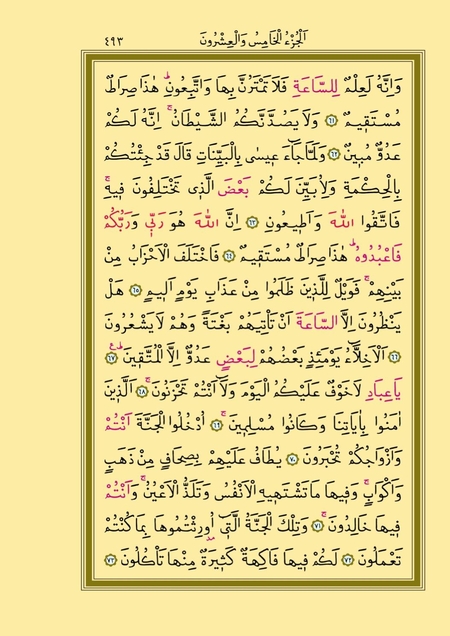 اَلْجُزْءُ الْخَامِسُ وَالْعِشْرُونَ ٤٩٣
وَاِنَّهُ لَعِلْمٌ لِلسَّاعَةِ فَلَا تَمْتَرُنَّ بِهَا وَاتَّبِعُونِۜ هٰذَا صِرَاطٌ
مُسْتَق۪يمٌ ﴿٦١﴾ وَلَا يَصُدَّنَّكُمُ الشَّيْطَانُۚ اِنَّهُ لَكُمْ
عَدُوٌّ مُب۪ينٌ ﴿٦٢﴾ وَلَمَّا جَٓاءَ ع۪يسٰى بِالْبَيِّنَاتِ قَالَ قَدْ جِئْتُكُمْ
بِالْحِكْمَةِ وَلِاُبَيِّنَ لَكُمْ بَعْضَ الَّذ۪ي تَخْتَلِفُونَ ف۪يهِۚ
فَاتَّقُوا اللّٰهَ وَاَط۪يعُونِ ﴿٦٣﴾ اِنَّ اللّٰهَ هُوَ رَبّ۪ي وَرَبُّكُمْ
فَاعْبُدُوهُۜ هٰذَا صِرَاطٌ مُسْتَق۪يمٌ ﴿٦٤﴾ فَاخْتَلَفَ الْاَحْزَابُ مِنْ
بَيْنِهِمْۚ فَوَيْلٌ لِلَّذ۪ينَ ظَلَمُوا مِنْ عَذَابِ يَوْمٍ اَل۪يمٍ ﴿٦٥﴾ هَلْ
يَنْظُرُونَ اِلَّا السَّاعَةَ اَنْ تَأْتِيَهُمْ بَغْتَةً وَهُمْ لَا يَشْعُرُونَ
﴿٦٦﴾ اَلْاَخِلَّٓاءُ يَوْمَئِذٍ بَعْضُهُمْ لِبَعْضٍ عَدُوٌّ اِلَّا الْمُتَّق۪ينَۜ۟ ﴿٦٧﴾
يَا عِبَادِ لَا خَوْفٌ عَلَيْكُمُ الْيَوْمَ وَلَٓا اَنْتُمْ تَحْزَنُونَۚ ﴿٦٨﴾ اَلَّذ۪ينَ
اٰمَنُوا بِاٰيَاتِنَا وَكَانُوا مُسْلِم۪ينَۚ ﴿٦٩﴾ اُدْخُلُوا الْجَنَّةَ اَنْتُمْ
وَاَزْوَاجُكُمْ تُحْبَرُونَ ﴿٧٠﴾ يُطَافُ عَلَيْهِمْ بِصِحَافٍ مِنْ ذَهَبٍ
وَاَكْوَابٍۚ وَف۪يهَا مَا تَشْتَه۪يهِ الْاَنْفُسُ وَتَلَذُّ الْاَعْيُنُۚ وَاَنْتُمْ
ف۪يهَا خَالِدُونَۚ ﴿٧١﴾ وَتِلْكَ الْجَنَّةُ الَّت۪ٓي اُو۫رِثْتُمُوهَا بِمَا كُنْتُمْ
تَعْمَلُونَ ﴿٧٢﴾ لَكُمْ ف۪يهَا فَاكِهَةٌ كَث۪يرَةٌ مِنْهَا تَأْكُلُونَ ﴿٧٣﴾